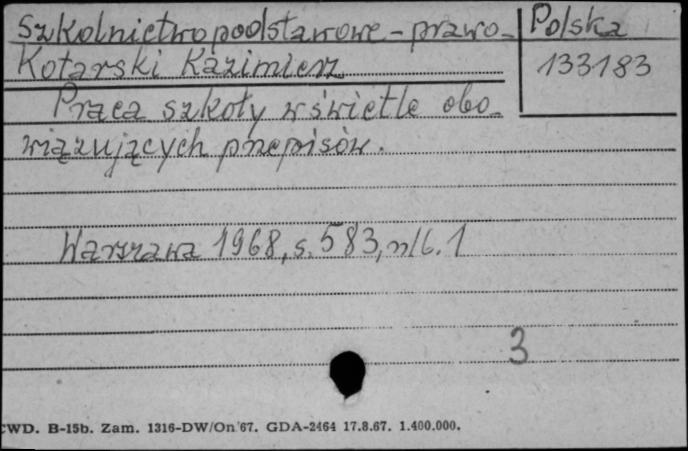 Szkolnictwo podstawowe - prawo - Polska
Kotarski Kazimierz 133183
Praca szkoły w świetle obo-
wiązujących przepisów.
Warszawa 1968, s. 583, nlb. 1
3
CWD. B-15b. Zam. 1316-DW/On'67. GDA-2464 17.8.67. 1.400.000.